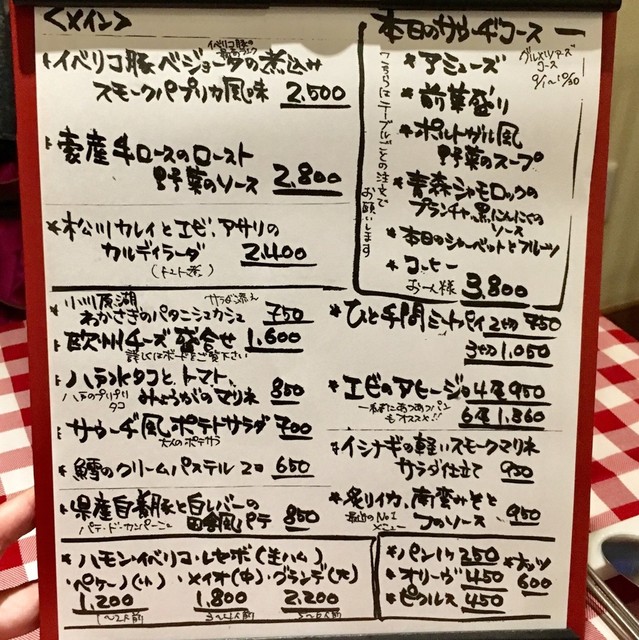 <メイン>
イベリコ豚ベジョータの煮込み
スモークパプリカ風味 2,500
豪産牛ロースのロースト
野菜のソース 2,800
松川カレイとエビ、アサリの
カルディラーダ 2,400
(トマト煮)
本日のサウーヂコース
グルメツアーズ
コース
9/1〜10/30
こちらはテーブルごとの注文で
お願いします
*アミューズ
*前菜盛り
*ポルトガル風
野菜のスープ
*青森シャモロックの
プランチャ、黒にんにくの
ソース
*本日のシャーベットとフルーツ
*コーヒー
お一人様 3,800
小川原湖
わかさぎのパタニシュカシュ 750
サラダ添え
欧州チーズ盛合せ 1,600
詳しくはボードをご覧下さい
ハラントタコと、トマト、
みょうがのマリネ 850
サウーヂ風ポテトサラダ 700
大人のポテサラ
鱈のクリームパステル 2コ 650
県産自養豚と白レバーの
田舎風パテ 850
パテ・ド・カンパーニュ
ひと手間ミートパイ 2ヶ 750
3ヶ 1,050
*エビのアヒージョ 4尾 950
6尾 1,360
一緒にあつあつパン
もオススメ!!
*イシナギの軽いスモークマリネ
サラダ仕立て 950
*炙りイカ、南蛮みそと
フのソース 950
最近のNo.1
メニュー
*ハモン・イベリコ・レセボ(生ハム)
・ペケーノ(小) ・メイオ(中)・グランデ(大)
1,200 1,800 2,200
1〜2人前 3〜4人前 5〜6人前
*パン1ケ 250
*オリーヴ 450
*ピクルス 450
*ナッツ
600